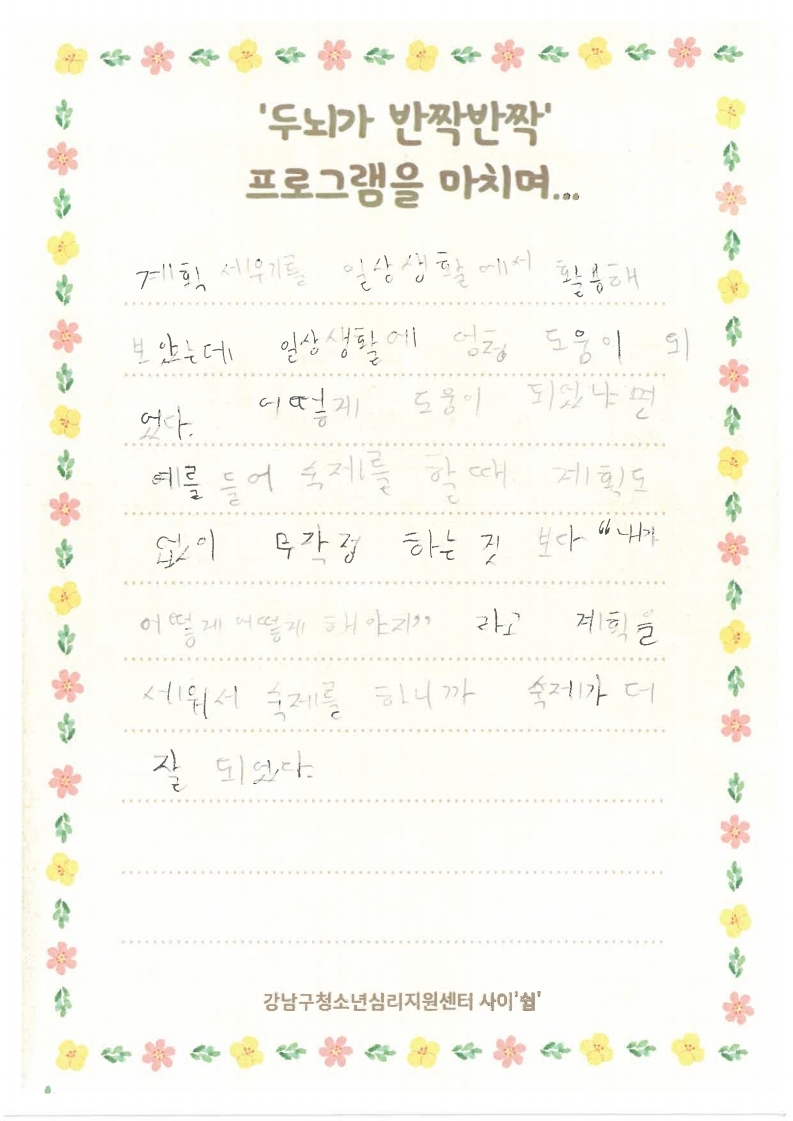 '두뇌가 반짝반짝'
프로그램을 마치며...
계획 세우기를 일상생활에서 활용해
보았는데 일상생활에 엄청 도움이 되
었다. 어떻게 도움이 되었냐면
예를 들어 숙제를 할때 계획도
없이 무작정 하는 것 보다 "내가
어떻게 어떻게 해야지" 라고 계획을
세워서 숙제를 하니까 숙제가 더
잘 되었다.
강남구청소년심리지원센터 사이'쉼'